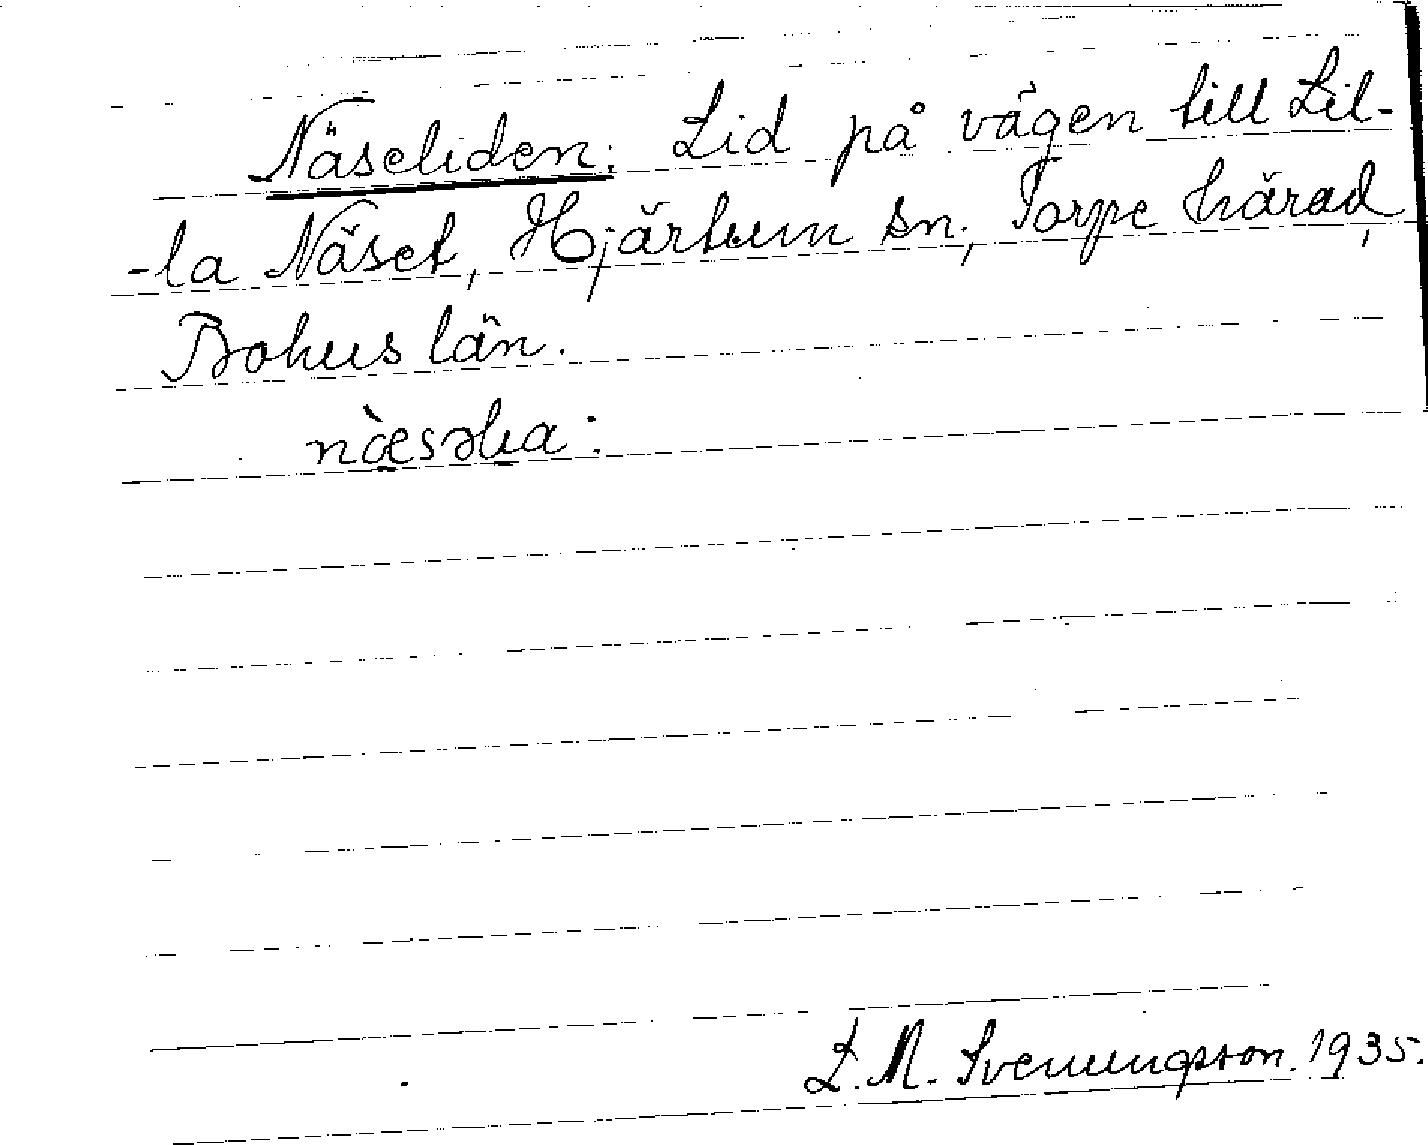 Näseliden: Lid på vägen till Lil-
-la Näset, Hjärtum sn, Torpe härad,
Bohus län.
nœ̀səlia:
L. M. Svenungsson. 1935.